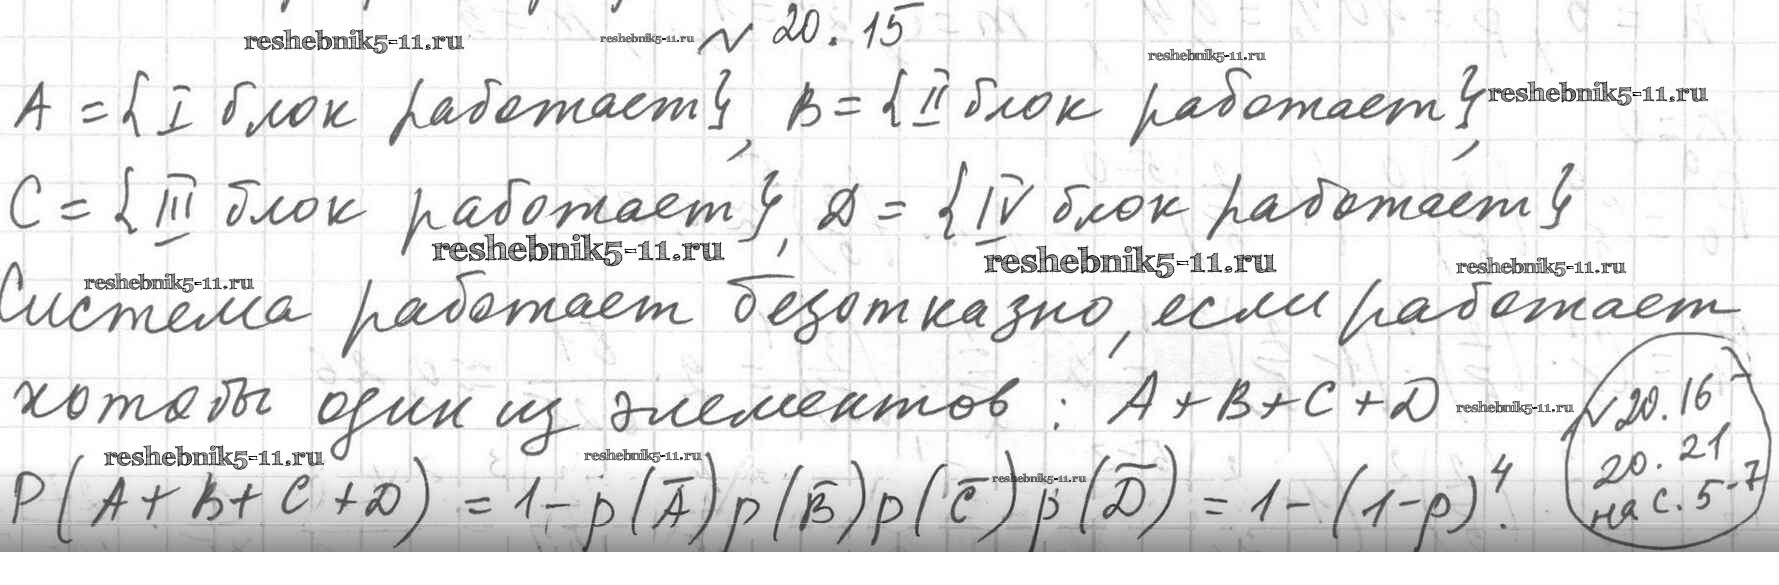 reshebnik5-11.ru reshebnik5-11.ru № 20.15 reshebnik5-11.ru
A = {I блок работает}, B = {II блок работает}, reshebnik5-11.ru
C = {III блок работает}, D = {IV блок работает}
reshebnik5-11.ru reshebnik5-11.ru
reshebnik5-11.ru reshebnik5-11.ru
Система работает безотказно, если работает
хотябы один из элементов: A + B + C + D reshebnik5-11.ru
reshebnik5-11.ru reshebnik5-11.ru reshebnik5-11.ru
P(A + B + C + D) = 1 - p(A̅)p(B̅)p(C̅)p(D̅) = 1 - (1-p)⁴.
№ 20.16 -
20.21
на с. 5-7